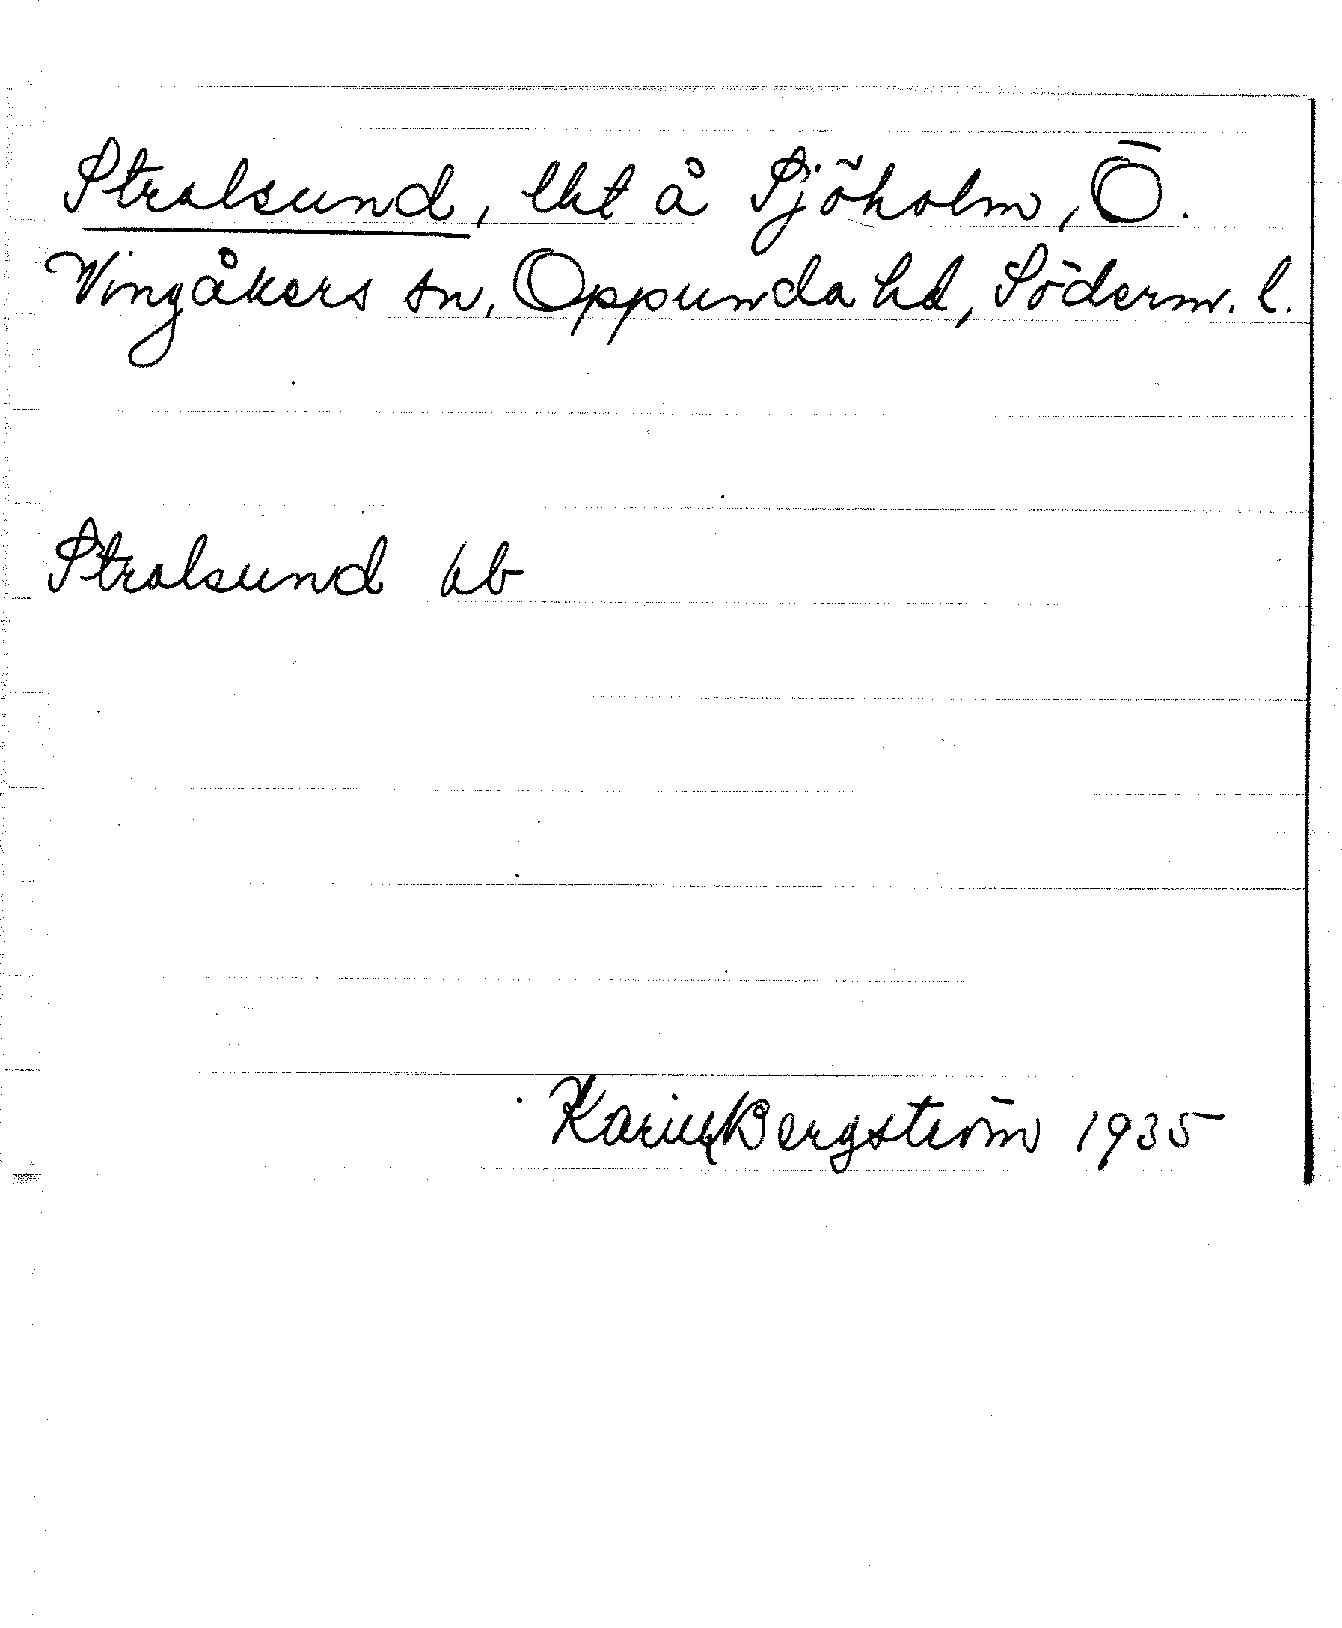 Stralsund, lht å Sjöholm, Ö.
Vingåkers sn, Oppunda hd, Söderm. l.
Stralsund kb
Karin Bergström 1935